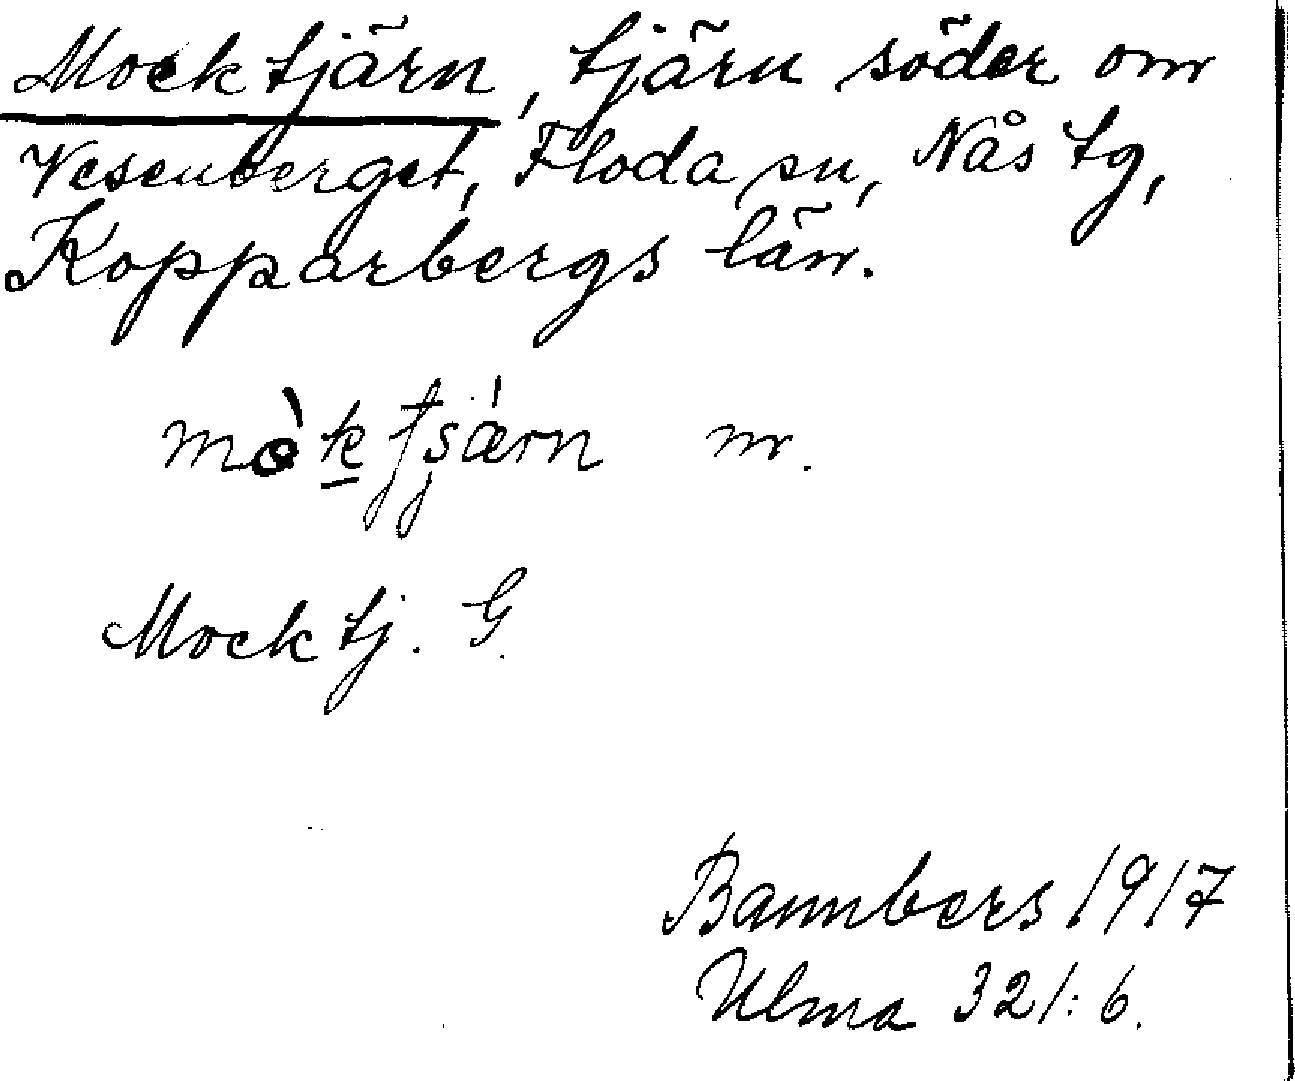 Mocktjärn, tjärn söder om
Vesenberget, Floda sn, Nås tg,
Kopparbergs län.
mòk tsjærn m.
Mocktj. G
Bannbers 1917
Ulma 321:6.